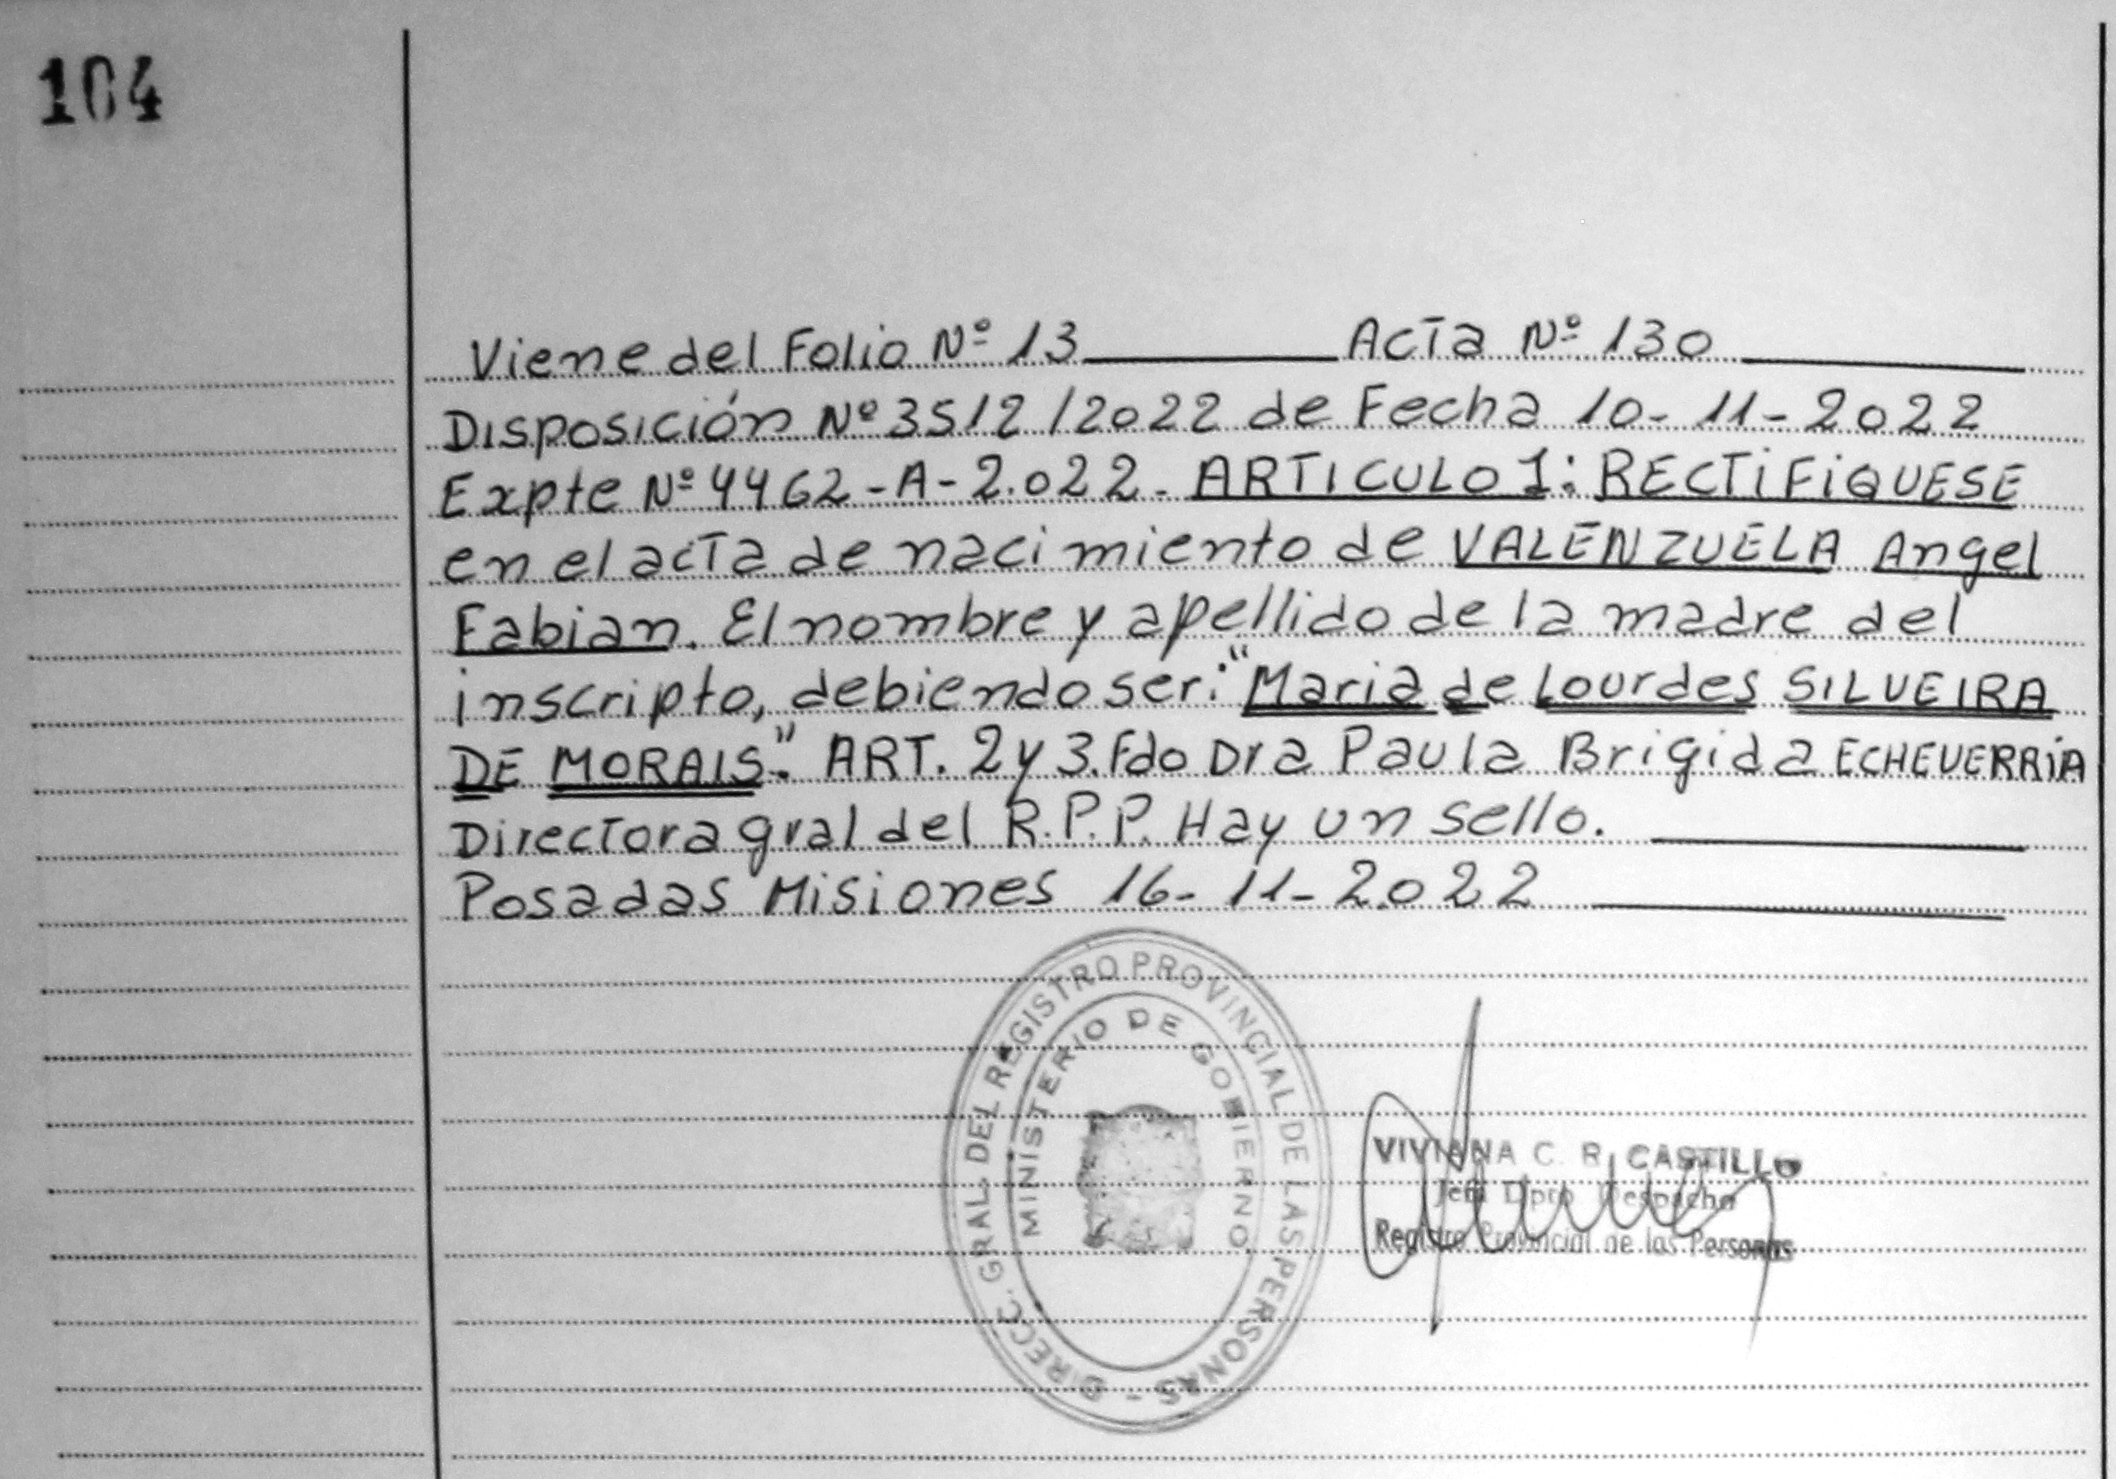 104
Viene del Folio Nº 13 Acta Nº 130
Disposición Nº 3512/2022 de Fecha 10-11-2022
Expte Nº 4462-A-2.022. ARTICULO 1: RECTIFIQUESE
en el acta de nacimiento de VALENZUELA Angel
Fabian. El nombre y apellido de la madre del
inscripto, debiendo ser: "Maria de Lourdes SILVEIRA
DE MORAIS". ART. 2 y 3. Fdo Dra Paula Brigida ECHEVERRÍA
Directora gral del R.P.P. Hay un sello.
Posadas Misiones 16-11-2.022
DIRECC. GRAL. DEL REGISTRO PROVINCIAL DE LAS PERSONAS -
MINISTERIO DE GOBIERNO
VIVIANA C. R. CASTILLO
Jefa Dpto Despacho
Registro Provincial de las Personas